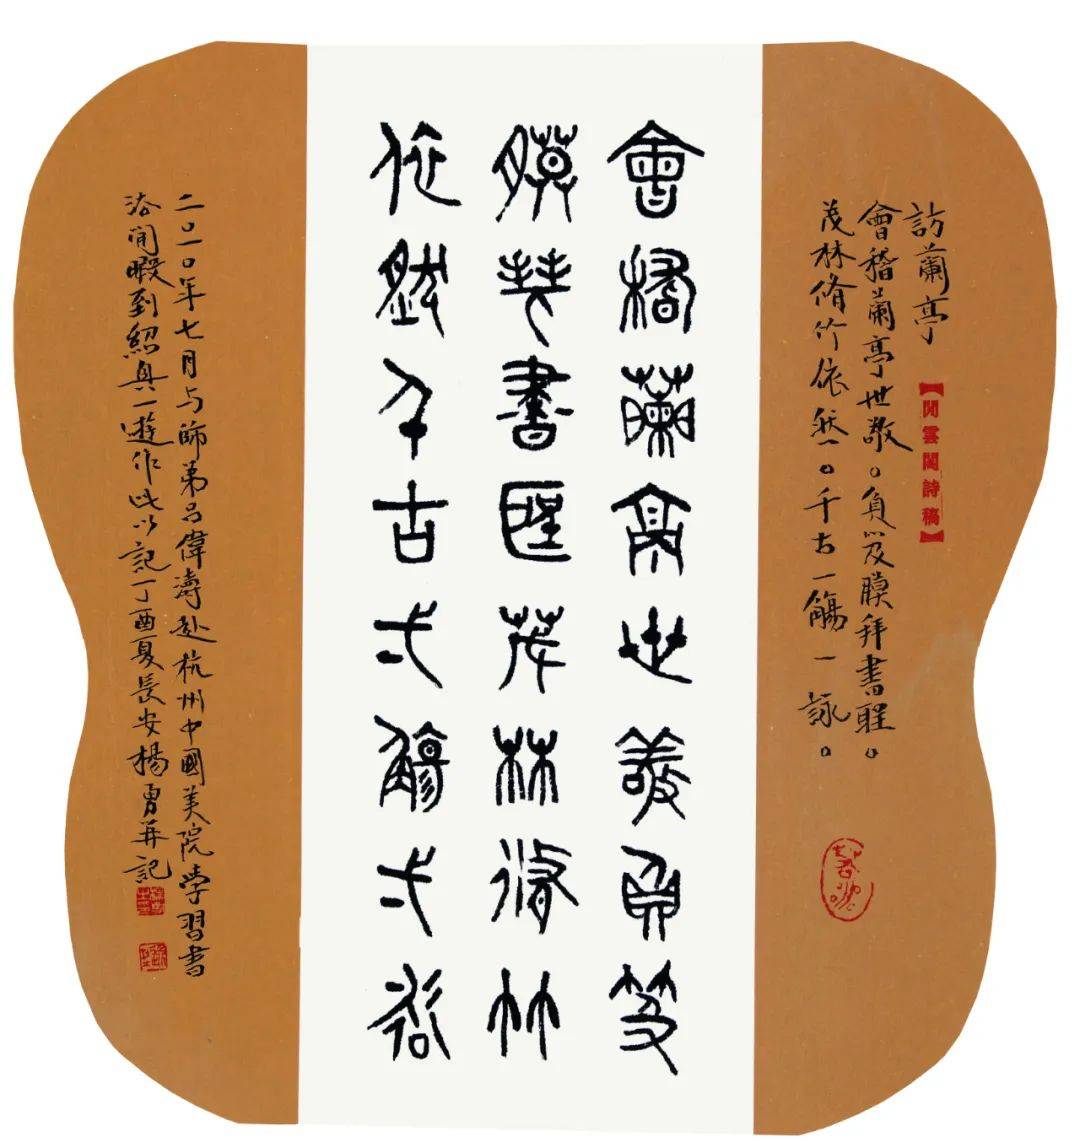 訪蘭亭
【閒雲閣詩稿】
會稽蘭亭世敬。負笈膜拜書聖。
茂林脩竹依然。千古一觴一詠。
會稽蘭亭世敬負笈
膜拜書聖茂林脩竹
依然千古弌觴弌詠
二〇一〇年七月与師弟呂偉濤赴杭州中國美院學習書
法閒暇到紹興一遊作此以記丁酉夏長安楊勇并記